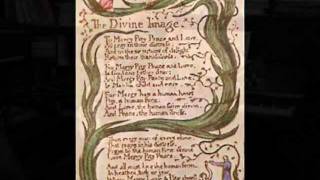 The Divine Image.
To Mercy Pity Peace and Love,
All pray in their distress:
And to these virtues of delight
Return their thankfulness.
For Mercy Pity Peace and Love,
Is God our father dear:
And Mercy Pity Peace and Love,
Is Man his child and care.
For Mercy has a human heart
Pity, a human face:
And Love, the human form divine,
And Peace, the human dress.
Then every man of every clime,
That prays in his distress,
Prays to the human form divine
Love Mercy Pity Peace.
And all must love the human form,
In heathen, turk or jew.
Where Mercy, Love & Pity dwell